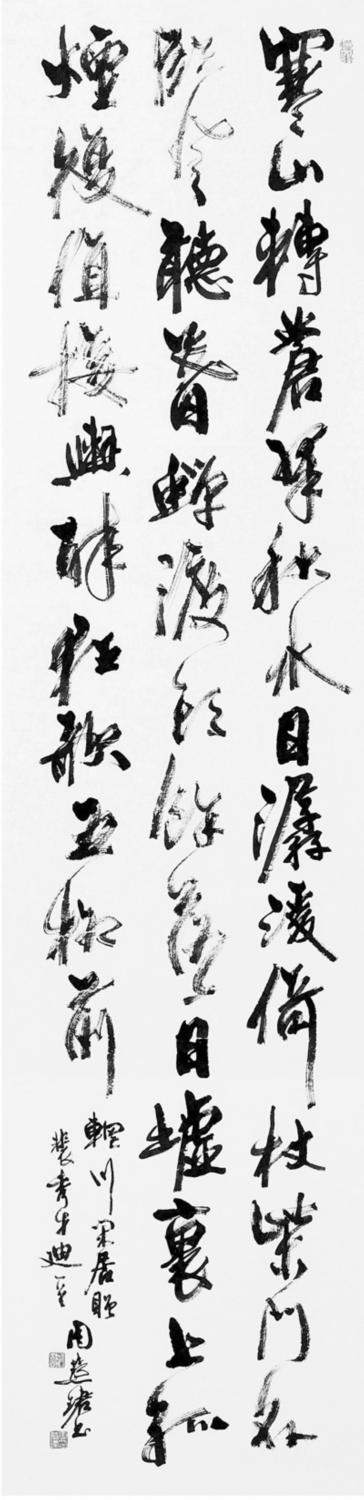 寒山轉蒼翠秋水日潺湲倚杖柴門外
臨風聽暮蟬渡頭餘落日墟裏上孤
煙復值接輿醉狂歌五柳前
輞川閑居贈
裴秀才迪 周慧珺書